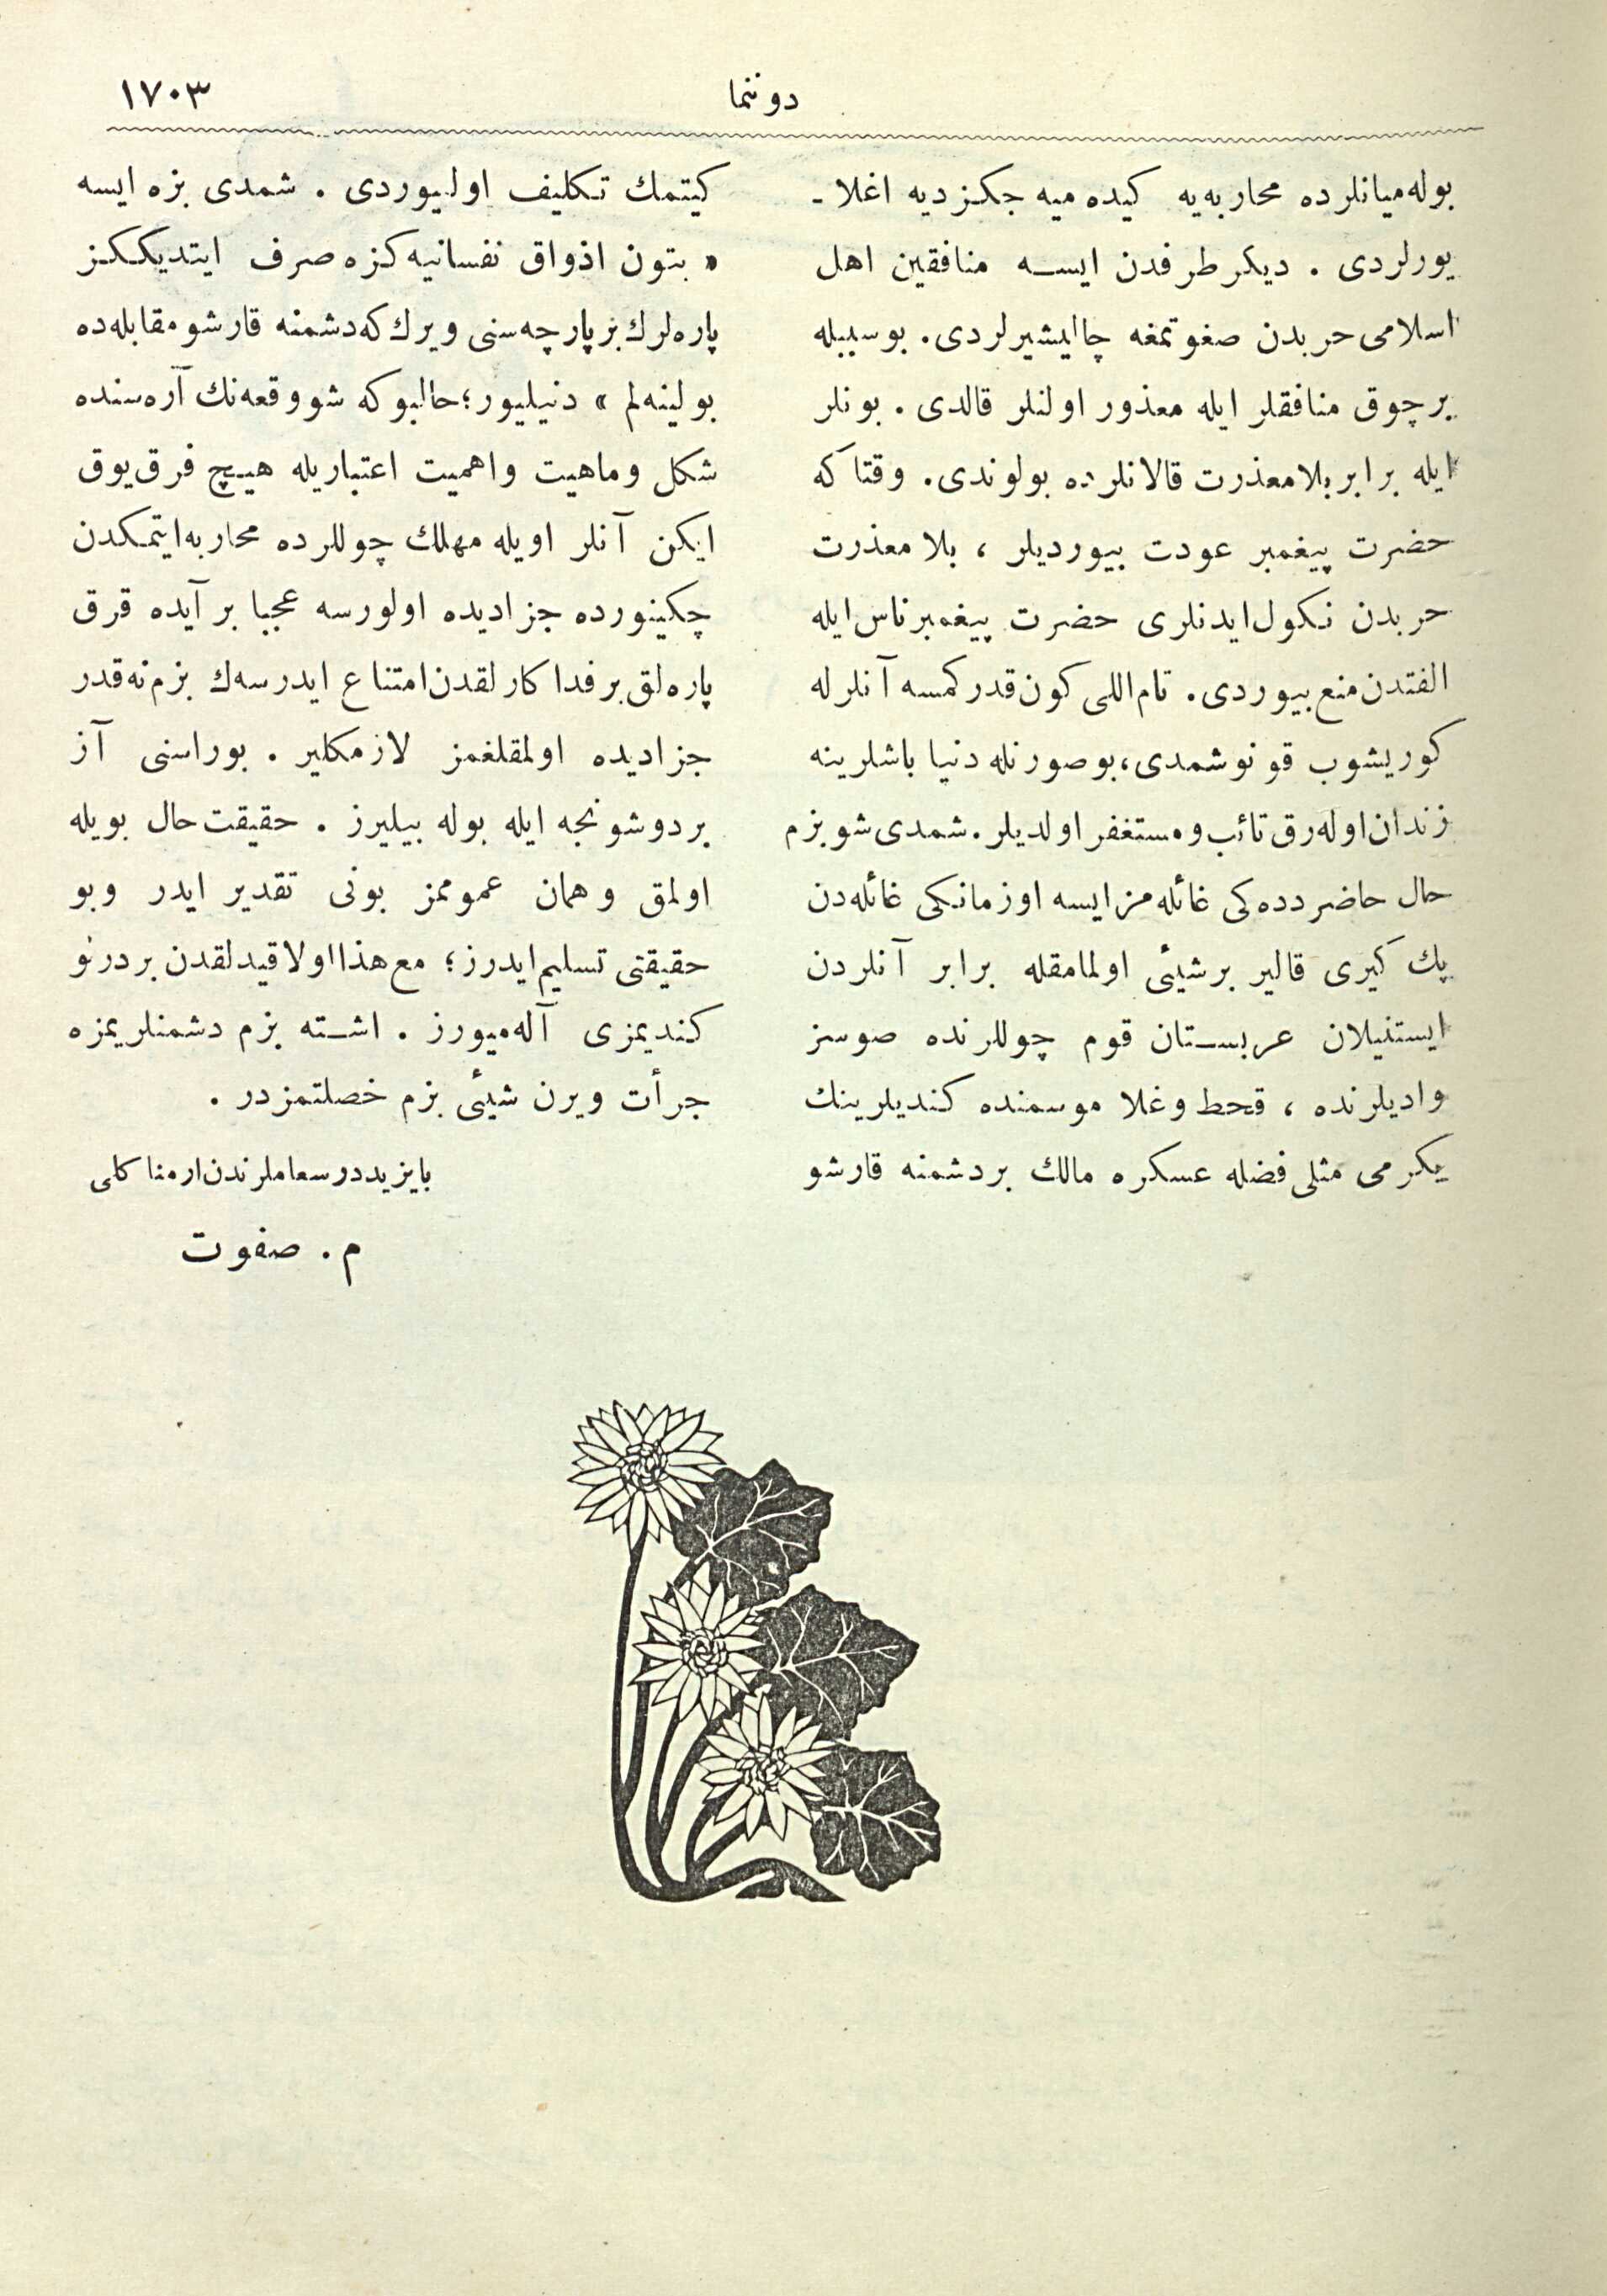 دوننما
١٧٠٣
بوله‌میانلرده محاربه‌یه كیده میه جكز دیه اغلا ـ
یورلردی . دیكر طرفدن ایسه منافقین اهل
اسلامی حربدن صغوتمغه چالیشیرلردی. بوسببله
برچوق منافقلر ایله معذور اولنلر قالدی . بونلر
ایله برابر بلامعذرت قالانلرده بولوندی. وقتاكه
حضرت پیغمبر عودت بیوردیلر ، بلا معذرت
حربدن نكول‌ایدنلری حضرت پیغمبر ناس‌ایله
الفتدن منع بیوردی. تام‌اللی كون قدر كمسه آنلرله
كوریشوب قونوشمدی، بوصورتله دنیا باشلرینه
زندان اوله‌رق تائب و مستغفر اولدیلر. شمدی شو بزم
حال حاضر دده‌كی غائله‌مز ایسه اوزمانكی غائله‌دن
پك كیری قالیر برشیئی اولمامقله برابر آنلردن
ایستنیلان عربستان قوم چوللرنده صوسز
وادیلرنده ، قحط وغلا موسمنده كندیلرینك
یكرمی مثلی فضله عسكره مالك بردشمنه قارشو
كیتمك تكلیف اولیوردی . شمدی بزه ایسه
« بتون اذواق نفسانیه‌كزه صرف ایتدیككز
پاره‌لرك بزپارچه‌سنی ویرك كه‌دشمنه قارشو مقابله‌ده
بولینه‌لم » دنیلیور؛ حالبوكه شووقعه‌نك آره‌سنده
شكل وماهیت واهمیت اعتباریله هیچ فرق یوق
ایكن آنلر اویله مهلك چوللرده محاربه‌ایتمكدن
چكینورده جزادیده اولورسه عجبا بر آیده قرق
پاره‌لق برفداكارلقدن‌امتناع ایدرسه‌ك بزم نه‌قدر
جزادیده اولمقلغمز لازمكلیر . بوراسنی آز
بردوشونجه ایله بوله بیلیرز . حقیقت حال بویله
اولمق وهمان عموممز بونی تقدیر ایدر وبو
حقیقتی تسلیم ایدرز؛ مع هذا اولاقیدلقدن بردرلو
كندیمزی آله‌میورز . اشته بزم دشمنلریمزه
جرأت ویرن شیئی بزم خصلتمزدر .
بایزید درسعاملرندن ارمناكلی
م . صفوت